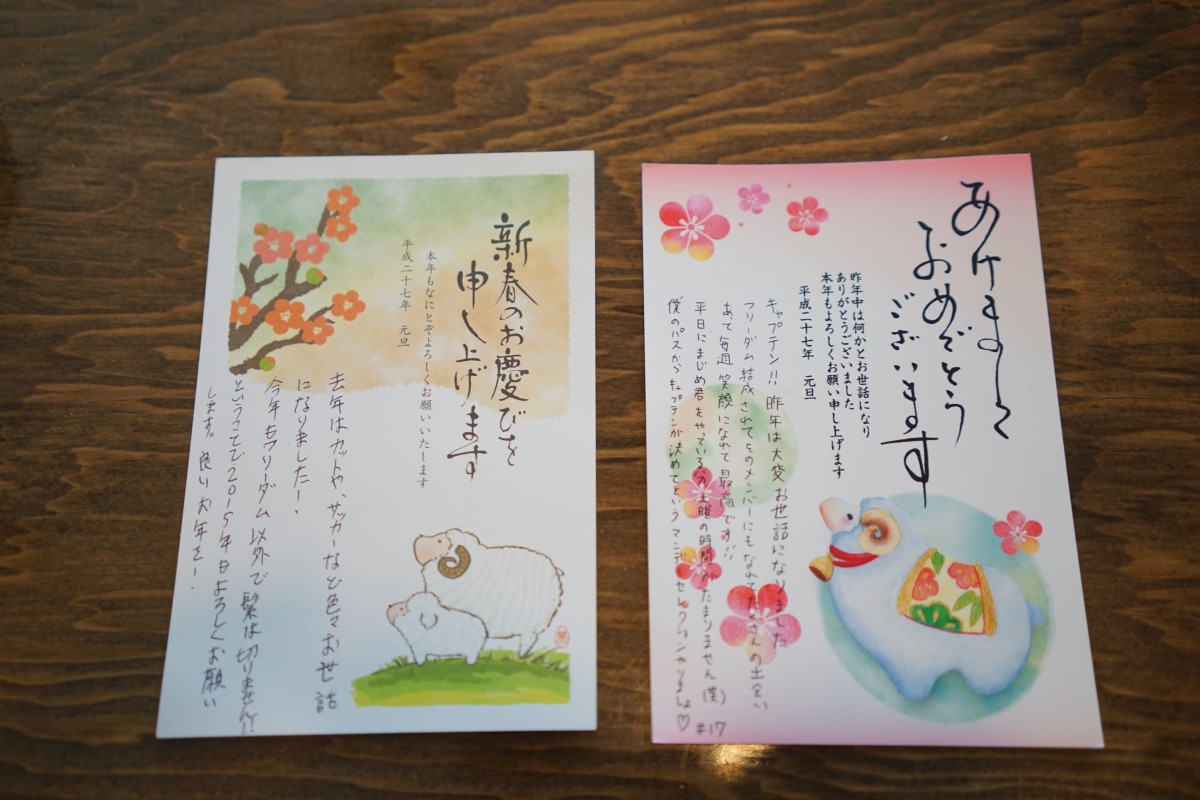 新春のお慶びを
申し上げます
本年もなにとぞよろしくお願いいたします
平成二十七年 元旦
去年はカットや、サッカーなど色々お世話
になりました!
今年もフリーダム以外で髪は切りません!!
ということで2015年もよろしくお願い
します。良いお年を!
あけまして
おめでとう
ございます
昨年中は何かとお世話になり
ありがとうございました
本年もよろしくお願い申し上げます
平成二十七年 元旦
キャプテン!! 昨年は大変お世話になりました
フリーダム結成されてそのメンバーにもなれてたくさんの出会い
あって毎週笑顔になれて最高です!!
平日にまじめ君をやっている分土曜の時間がたまりません(笑)
僕のパスからキャプテンが決めてというマンデーセレクションやりましょ♡
#17